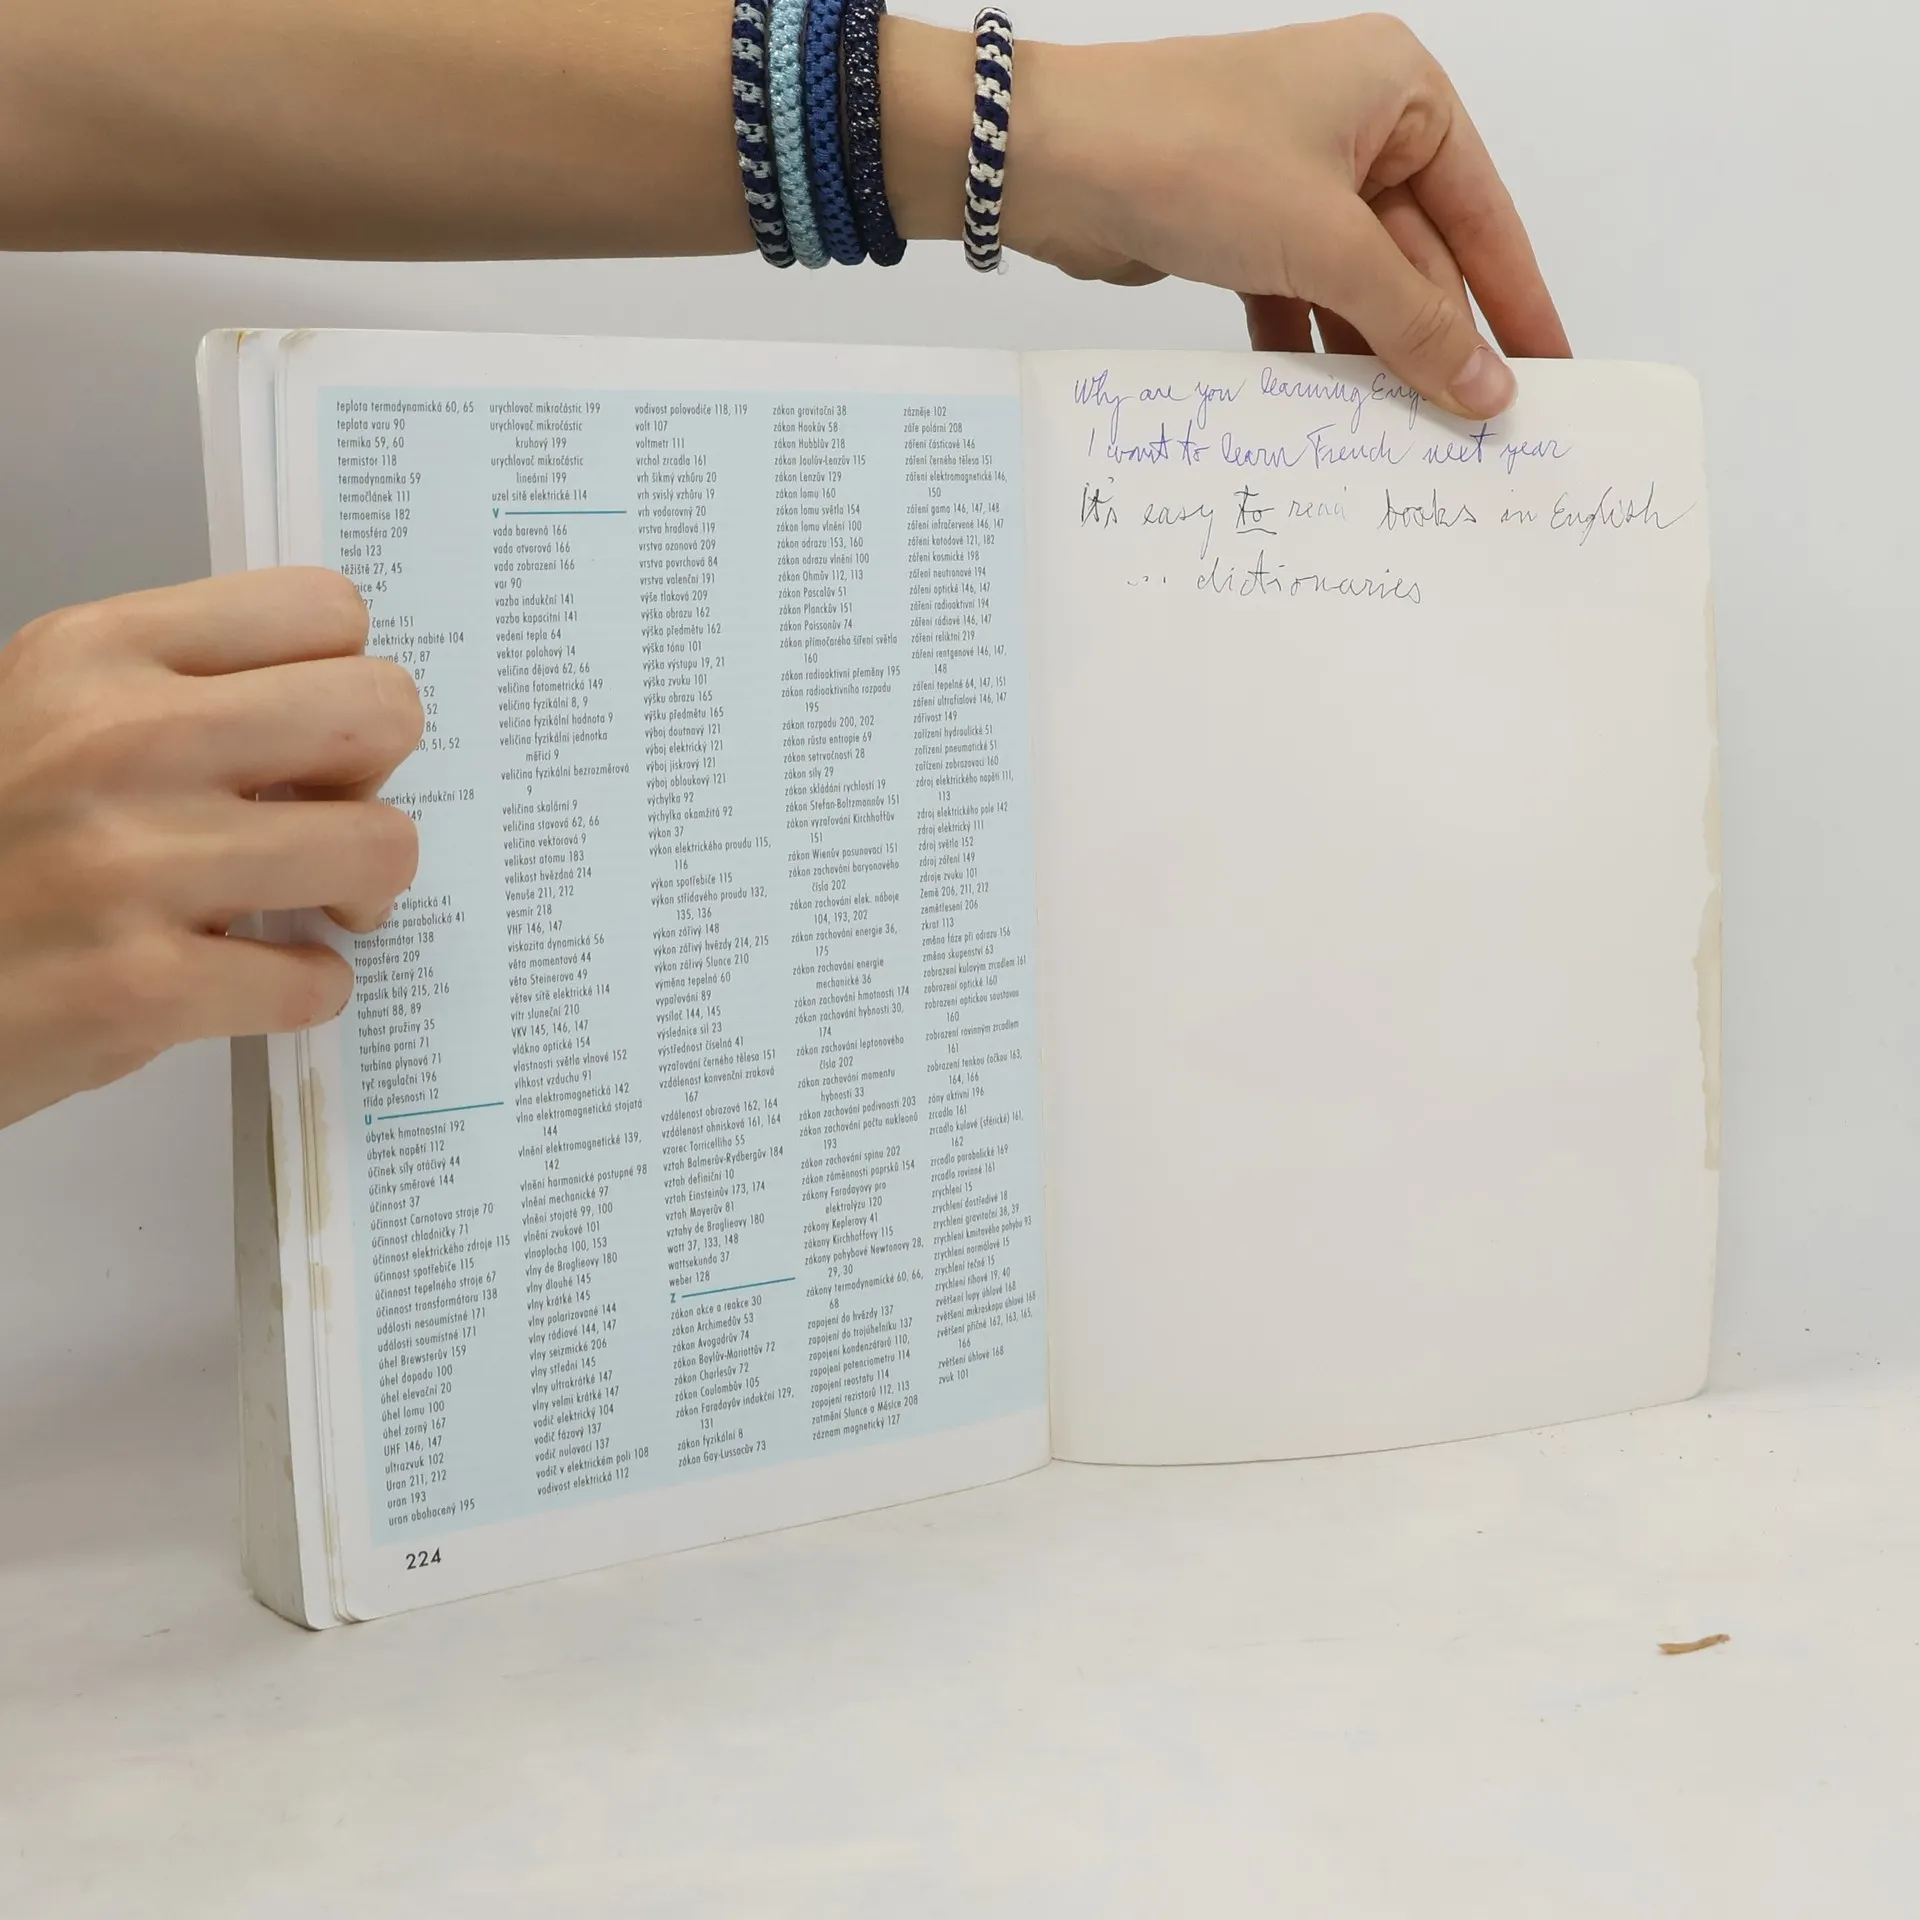 teplota termodynamická 60, 65
teplota varu 90
termika 59, 60
termistor 118
termodynamika 59
termočlánek 111
termoemise 182
termosféra 209
tesla 123
těžiště 27, 45
nice 45
27
černé 151
elektricky nabité 104
57, 87
87
52
52
86
50, 51, 52
magnetický indukční 128
149
eliptická 41
parabolická 41
transformátor 138
troposféra 209
trpaslík černý 216
trpaslík bílý 215, 216
tuhnutí 88, 89
tuhost pružiny 35
turbína parní 71
turbína plynová 71
tyč regulační 196
třída přesnosti 12
U
úbytek hmotnostní 192
úbytek napětí 112
účinek síly otáčivý 44
účinky směrové 144
účinnost 37
účinnost Carnotova stroje 70
účinnost chladničky 71
účinnost elektrického zdroje 115
účinnost spotřebiče 115
účinnost tepelného stroje 67
účinnost transformátoru 138
události nesoumístné 171
události soumístné 171
úhel Brewsterův 159
úhel dopadu 100
úhel elevační 20
úhel lomu 100
úhel zorný 167
UHF 146, 147
ultrazvuk 102
Uran 211, 212
uran 193
uran obohacený 195
urychlovač mikročástic 199
urychlovač mikročástic
kruhový 199
urychlovač mikročástic
lineární 199
uzel sítě elektrické 114
V
vada barevná 166
vada otvorová 166
vada zobrazení 166
var 90
vazba indukční 141
vazba kapacitní 141
vedení tepla 64
vektor polohový 14
veličina dějová 62, 66
veličina fotometrická 149
veličina fyzikální 8, 9
veličina fyzikální hodnota 9
veličina fyzikální jednotka
měřicí 9
veličina fyzikální bezrozměrová
9
veličina skalární 9
veličina stavová 62, 66
veličina vektorová 9
velikost atomu 183
velikost hvězdná 214
Venuše 211, 212
vesmír 218
VHF 146, 147
viskozita dynamická 56
věta momentová 44
věta Steinerova 49
větev sítě elektrické 114
vítr sluneční 210
VKV 145, 146, 147
vlákno optické 154
vlastnosti světla vlnové 152
vlhkost vzduchu 91
vlna elektromagnetická 142
vlna elektromagnetická stojatá
144
vlnění elektromagnetické 139,
142
vlnění harmonické postupné 98
vlnění mechanické 97
vlnění stojaté 99, 100
vlnění zvukové 101
vlnoplocha 100, 153
vlny de Broglieovy 180
vlny dlouhé 145
vlny krátké 145
vlny polarizované 144
vlny rádiové 144, 147
vlny seizmické 206
vlny střední 145
vlny ultrakrátké 147
vlny velmi krátké 147
vodič elektrický 104
vodič fázový 137
vodič nulovací 137
vodič v elektrickém poli 108
vodivost elektrická 112
vodivost polovodiče 118, 119
volt 107
voltmetr 111
vrchol zrcadla 161
vrh šikmý vzhůru 20
vrh svislý vzhůru 19
vrh vodorovný 20
vrstva hradlová 119
vrstva ozonová 209
vrstva povrchová 84
vrstva valenční 191
výše tlaková 209
výška obrazu 162
výška předmětu 162
výška tónu 101
výška výstupu 19, 21
výška zvuku 101
výšku obrazu 165
výšku předmětu 165
výboj doutnavý 121
výboj elektrický 121
výboj jiskrový 121
výboj obloukový 121
výchylka 92
výchylka okamžitá 92
výkon 37
výkon elektrického proudu 115,
116
výkon spotřebiče 115
výkon střídavého proudu 132,
135, 136
výkon zářivý 148
výkon zářivý hvězdy 214, 215
výkon zářivý Slunce 210
výměna tepelná 60
vypařování 89
vysílač 144, 145
výslednice sil 23
výstřednost číselná 41
vyzařování černého tělesa 151
vzdálenost konvenční zraková
167
vzdálenost obrazová 162, 164
vzdálenost ohnisková 161, 164
vzorec Torricelliho 55
vztah Balmerův-Rydbergův 184
vztah definiční 10
vztah Einsteinův 173, 174
vztah Mayerův 81
vztahy de Broglieovy 180
watt 37, 133, 148
wattsekunda 37
weber 128
Z
zákon akce a reakce 30
zákon Archimedův 53
zákon Avogadrův 74
zákon Boylův-Mariottův 72
zákon Charlesův 72
zákon Coulombův 105
zákon Faradayův indukční 129,
131
zákon fyzikální 8
zákon Gay-Lussacův 73
zákon gravitační 38
zákon Hookův 58
zákon Hubblův 218
zákon Joulův-Lenzův 115
zákon Lenzův 129
zákon lomu 160
zákon lomu světla 154
zákon lomu vlnění 100
zákon odrazu 153, 160
zákon odrazu vlnění 100
zákon Ohmův 112, 113
zákon Pascalův 51
zákon Planckův 151
zákon Poissonův 74
zákon přímočarého šíření světla
160
zákon radioaktivní přeměny 195
zákon radioaktivního rozpadu
195
zákon rozpadu 200, 202
zákon růstu entropie 69
zákon setrvačnosti 28
zákon síly 29
zákon skládání rychlostí 19
zákon Stefan-Boltzmannův 151
zákon vyzařování Kirchhoffův
151
zákon Wienův posunovací 151
zákon zachování baryonového
čísla 202
zákon zachování elek. náboje
104, 193, 202
zákon zachování energie 36,
175
zákon zachování energie
mechanické 36
zákon zachování hmotnosti 174
zákon zachování hybnosti 30,
174
zákon zachování leptonového
čísla 202
zákon zachování momentu
hybnosti 33
zákon zachování podivnosti 203
zákon zachování počtu nukleonů
193
zákon zachování spinu 202
zákon záměnnosti paprsků 154
zákony Faradayovy pro
elektrolýzu 120
zákony Keplerovy 41
zákony Kirchhoffovy 115
zákony pohybové Newtonovy 28,
29, 30
zákony termodynamické 60, 66,
68
zapojení do hvězdy 137
zapojení do trojúhelníku 137
zapojení kondenzátorů 110,
zapojení potenciometru 114
zapojení reostatu 114
zapojení rezistorů 112, 113
zatmění Slunce a Měsíce 208
záznam magnetický 127
zázněje 102
záře polární 208
záření částicové 146
záření černého tělesa 151
záření elektromagnetické 146,
150
záření gama 146, 147, 148
záření infračervené 146, 147
záření katodové 121, 182
záření kosmické 198
záření neutronové 194
záření optické 146, 147
záření radioaktivní 194
záření rádiové 146, 147
záření reliktní 219
záření rentgenové 146, 147,
148
záření tepelné 64, 147, 151
záření ultrafialové 146, 147
zářivost 149
zařízení hydraulické 51
zařízení pneumatické 51
zařízení zobrazovací 160
zdroj elektrického napětí 111,
113
zdroj elektrického pole 142
zdroj elektrický 111
zdroj světla 152
zdroj záření 149
zdroje zvuku 101
Země 206, 211, 212
zemětřesení 206
zkrat 113
změna fáze při odrazu 156
změna skupenství 63
zobrazení kulovým zrcadlem 161
zobrazení optické 160
zobrazení optickou soustavou
160
zobrazení rovinným zrcadlem
161
zobrazení tenkou čočkou 163,
164, 166
zóny aktivní 196
zrcadla 161
zrcadla kulové (sférické) 161,
162
zrcadla parabolické 169
zrcadla rovinné 161
zrychlení 15
zrychlení dostředivé 18
zrychlení gravitační 38, 39
zrychlení kmitavého pohybu 93
zrychlení normálové 15
zrychlení tečné 15
zrychlení tíhové 19, 40
zvětšení lupy úhlové 168
zvětšení mikroskopu úhlové 168
zvětšení příčné 162, 163, 165,
166
zvětšení úhlové 168
zvuk 101
224
Why are you learning Eng
I want to learn French next year
It's easy to read books in English
... dictionaries